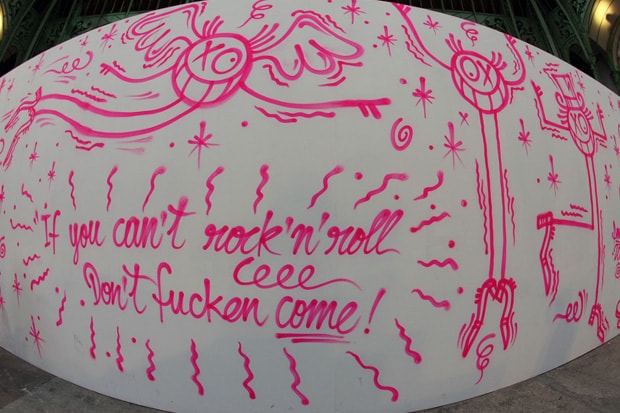 "If you can't rock'n'roll
Don't fucken come!